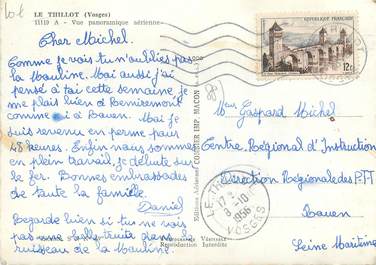 LE THILLOT (Vosges)
11119 A - Vue panoramique aérienne
Cher Michel.
Comme je vois tu n'oublies pas
la Mouline. Moi aussi j'ai
pensé à toi cette semaine je
me plais bien à Remiremont
comme toi à Rouen. Moi je
suis revenu en perme pour
48 heures. Enfin nous sommes
en plein travail, je débute sur
le fer. Bons embrassades
de toute la famille.
Daniel
Regarde bien si tu ne vois
pas une belle truite dans le
ruisseau de la Mouline.
Reproduction Interdite
Editions COMBIER IMP. MACON
RÉPUBLIQUE FRANÇAISE
12F
LE THILLOT
17 H
8 -10
1956
VOSGES
Gaspard Michel
Centre Régional d'Instruction
Direction Régionale des P.T.T
Rouen
Seine Maritime